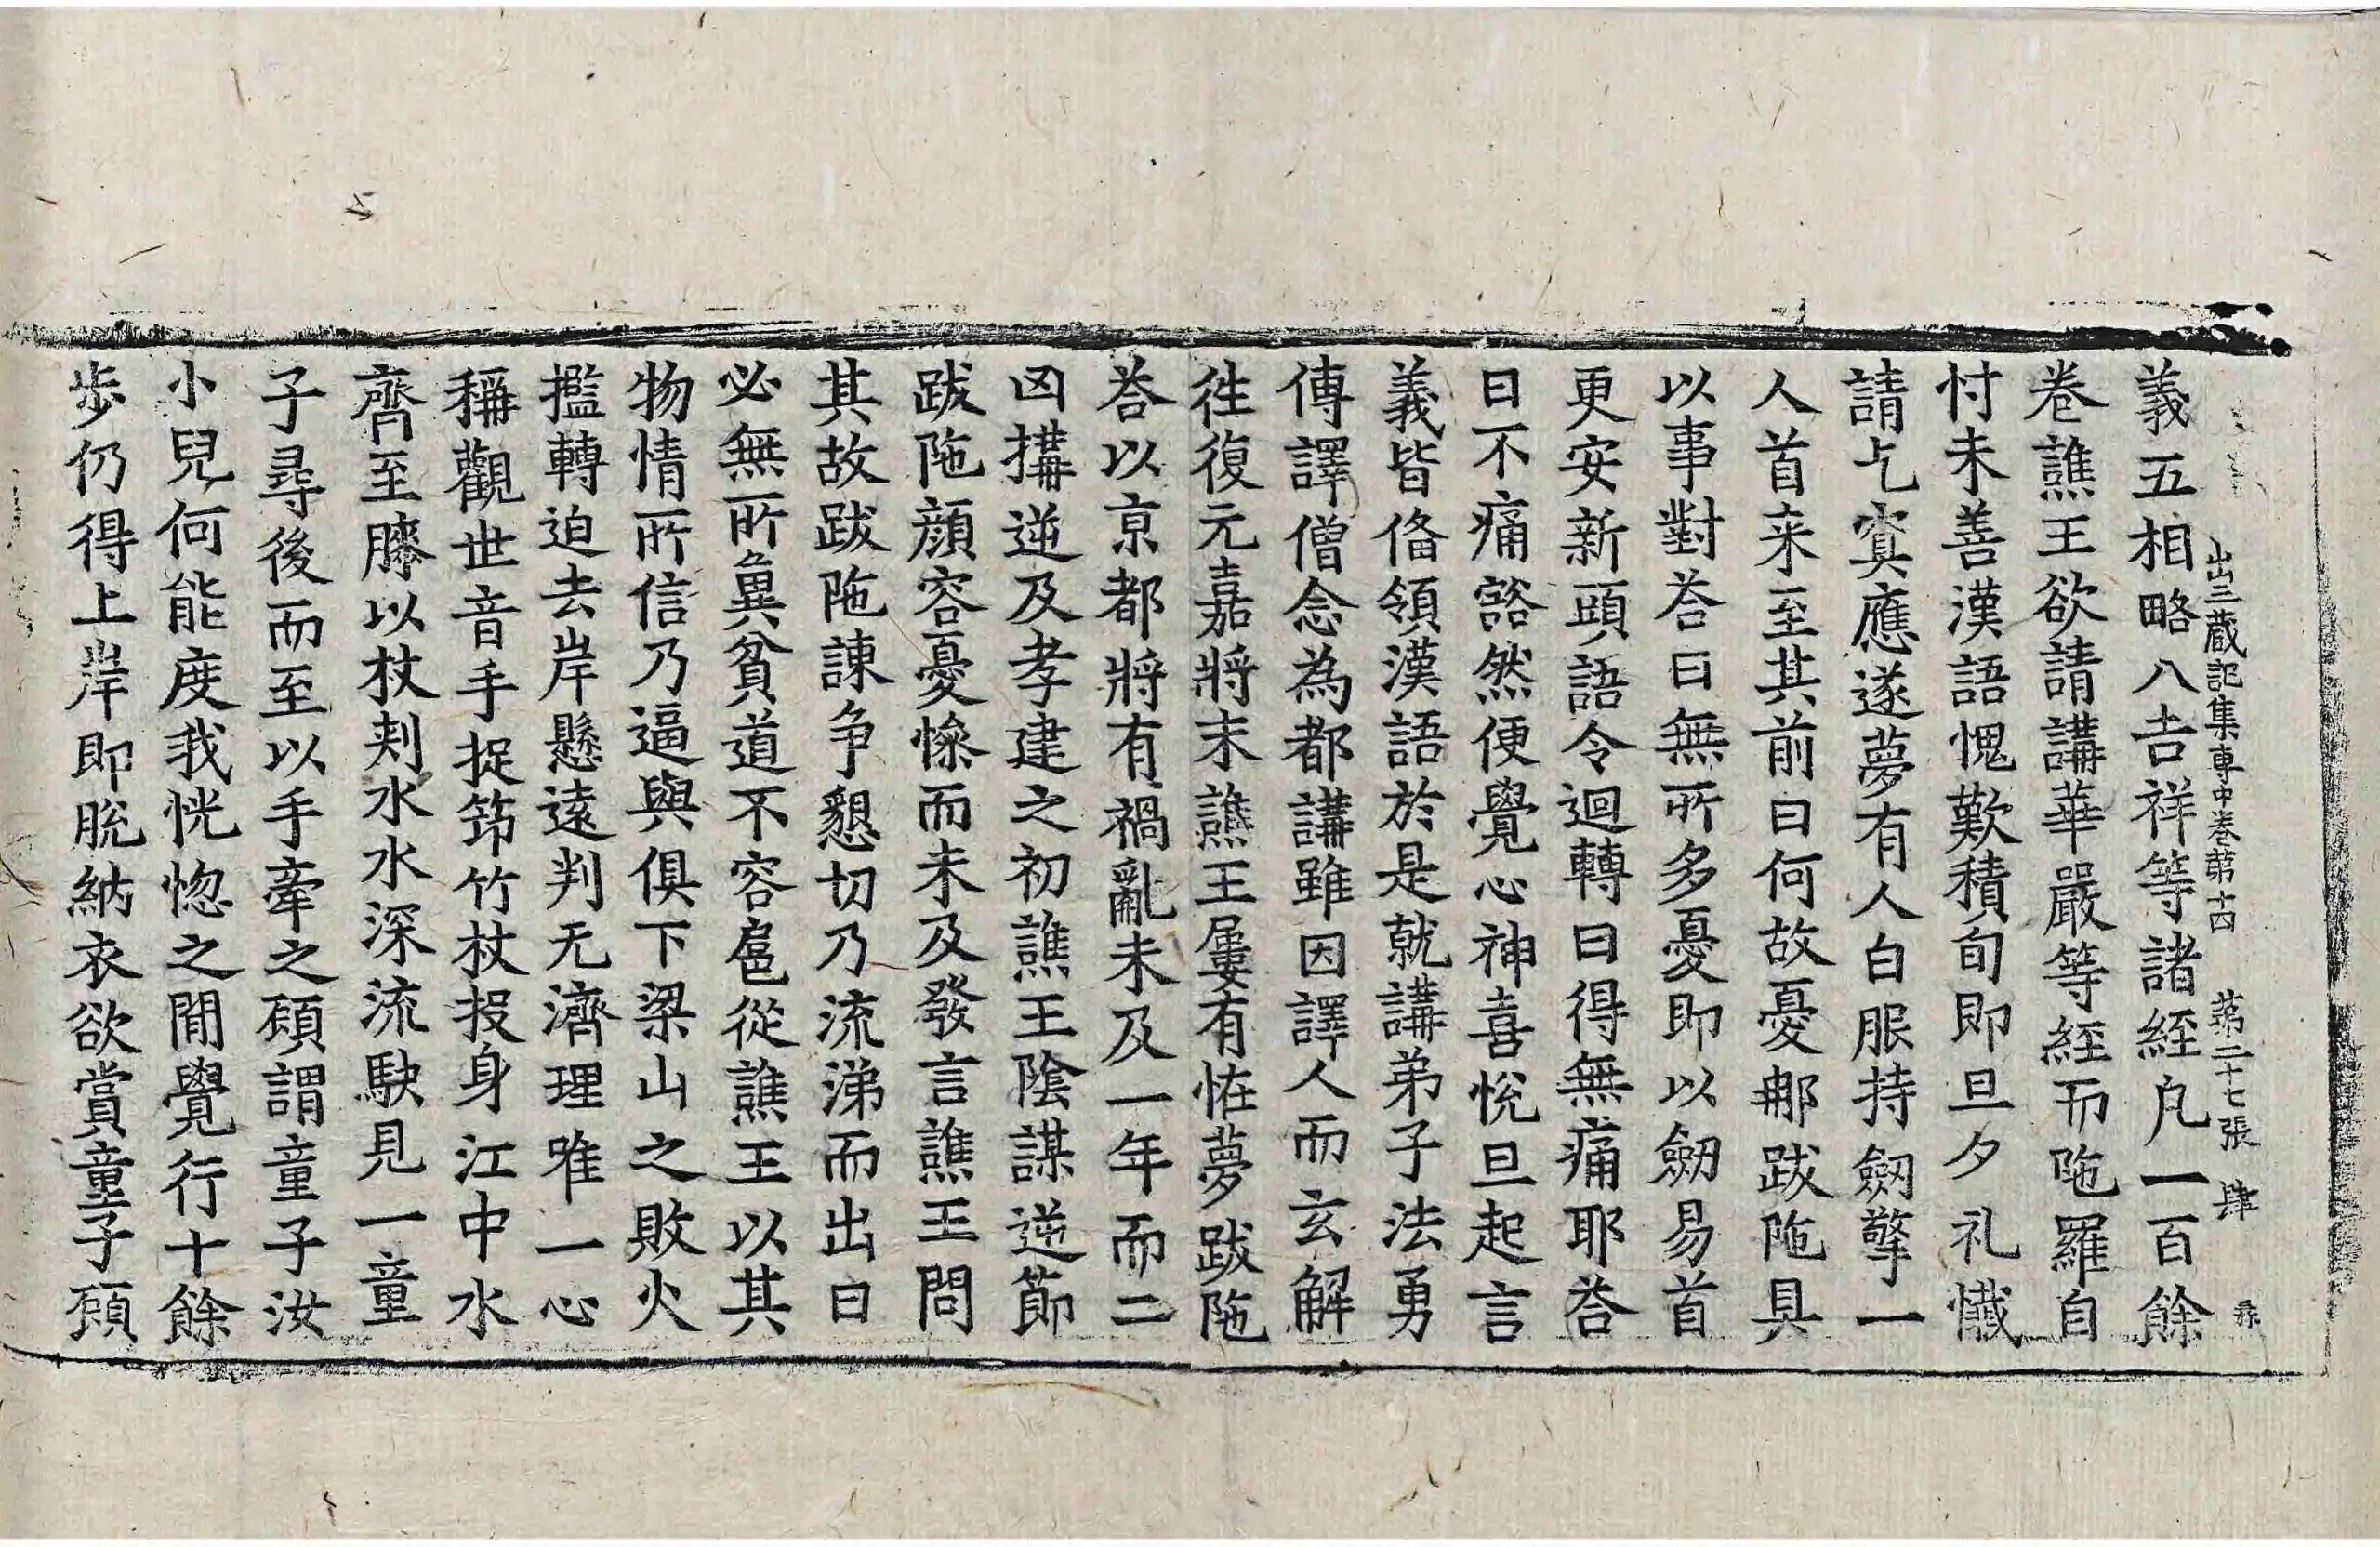 出三蔵記集専中巻第十四 第二十七張 肆
義五相略八吉祥等諸経凡一百餘
卷譙王欲請講華嚴等経而陁羅自
忖未善漢語愧歎積旬即旦夕礼懺
請乞㝠應遂夢有人白服持劒擎一
人首来至其前曰何故憂耶跋陁具
以事對荅曰無所多憂即以劒易首
更安新頭語令迴轉曰得無痛耶荅
曰不痛豁然便覺心神喜悅旦起言
義皆俻領漢語於是就講弟子法勇
傳譯僧念為都講雖因譯人而玄解
徃復元嘉將末譙王屢有恠夢跋陁
荅以京都將有禍亂未及一年而二
凶搆逆及孝建之初譙王陰謀逆節
跋陁顔容憂慘而未及發言譙王問
其故跋陁諫争懇切乃流涕而出曰
必無所兾貧道不容扈從譙王以其
物情所信乃逼與俱下梁山之敗火
㰖轉迫去岸懸遠判无濟理唯一心
稱觀世音手捉筇竹杖投身江中水
齊至膝以杖刾水水深流駃見一童
子尋後而至以手牽之頋謂童子汝
小兒何能度我恍惚之閒覺行十餘
歩仍得上岸即脫納衣欲賞童子頋